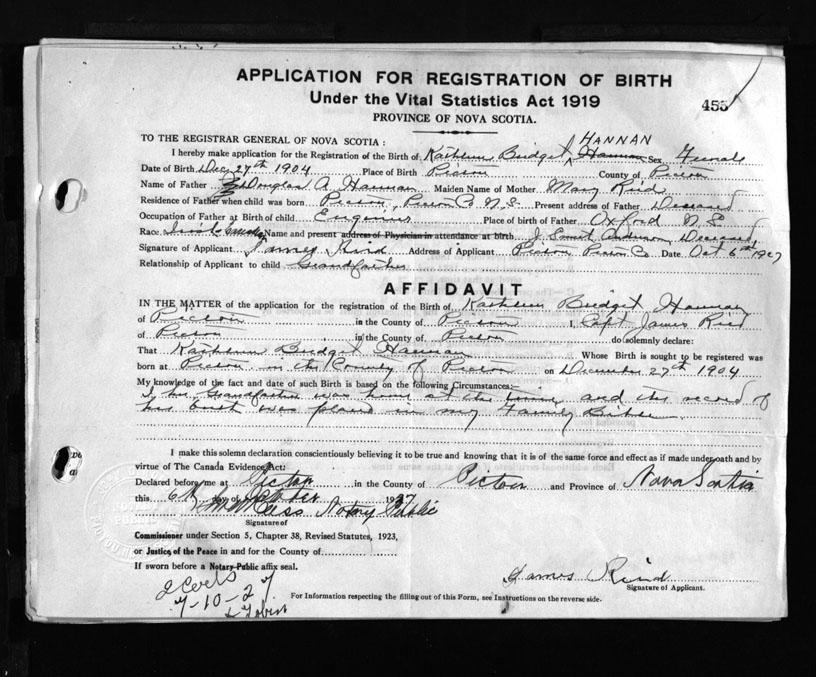 APPLICATION FOR REGISTRATION OF BIRTH
Under the Vital Statistics Act 1919
455
PROVINCE OF NOVA SCOTIA.
TO THE REGISTRAR GENERAL OF NOVA SCOTIA :
HANNAN
I hereby make application for the Registration of the Birth of Kathleen Bridget Hannan Sex Female
Date of Birth Dec 27th 1904 Place of Birth Pictou County of Pictou
Name of Father Douglas A. Hannan Maiden Name of Mother Mary Reid
Residence of Father when child was born Pictou, Pictou Co N.S. Present address of Father Deceased
Occupation of Father at Birth of child Place of Birth of Father Oxford N.S.
Race. Name and present address of Physician in attendance at birth J. Anderson Deceased
Signature of Applicant James Reid Address of Applicant Pictou Pictou Co Date Oct 6th 1927
Relationship of Applicant to child Grandfather
AFFIDAVIT
IN THE MATTER of the application for the registration of the Birth of Kathleen Bridget Hannan
of Pictou in the County of Pictou I, Capt James Reid
of Pictou in the County of Pictou do solemnly declare:
That Kathleen Bridget Hannan Whose Birth is sought to be registered was
born at Pictou in the County of Pictou on December 27th 1904
My knowledge of the fact and date of such Birth is based on the following Circumstances:—
I the Grandfather was home at the time and the record of
his birth was placed in my Family Bible
I make this solemn declaration conscientiously believing it to be true and knowing that it is of the same force and effect as if made under oath and by
virtue of The Canada Evidence Act:
Declared before me at Pictou in the County of Pictou and Province of Nova Scotia
this 6th day of October 1927
Notary Public
Signature of
Commissioner under Section 5, Chapter 38, Revised Statutes, 1923,
or Justice of the Peace in and for the County of
If sworn before a Notary Public affix seal.
James Reid
Signature of Applicant.
7-10-27
For Information respecting the filling out of this Form, see Instructions on the reverse side.